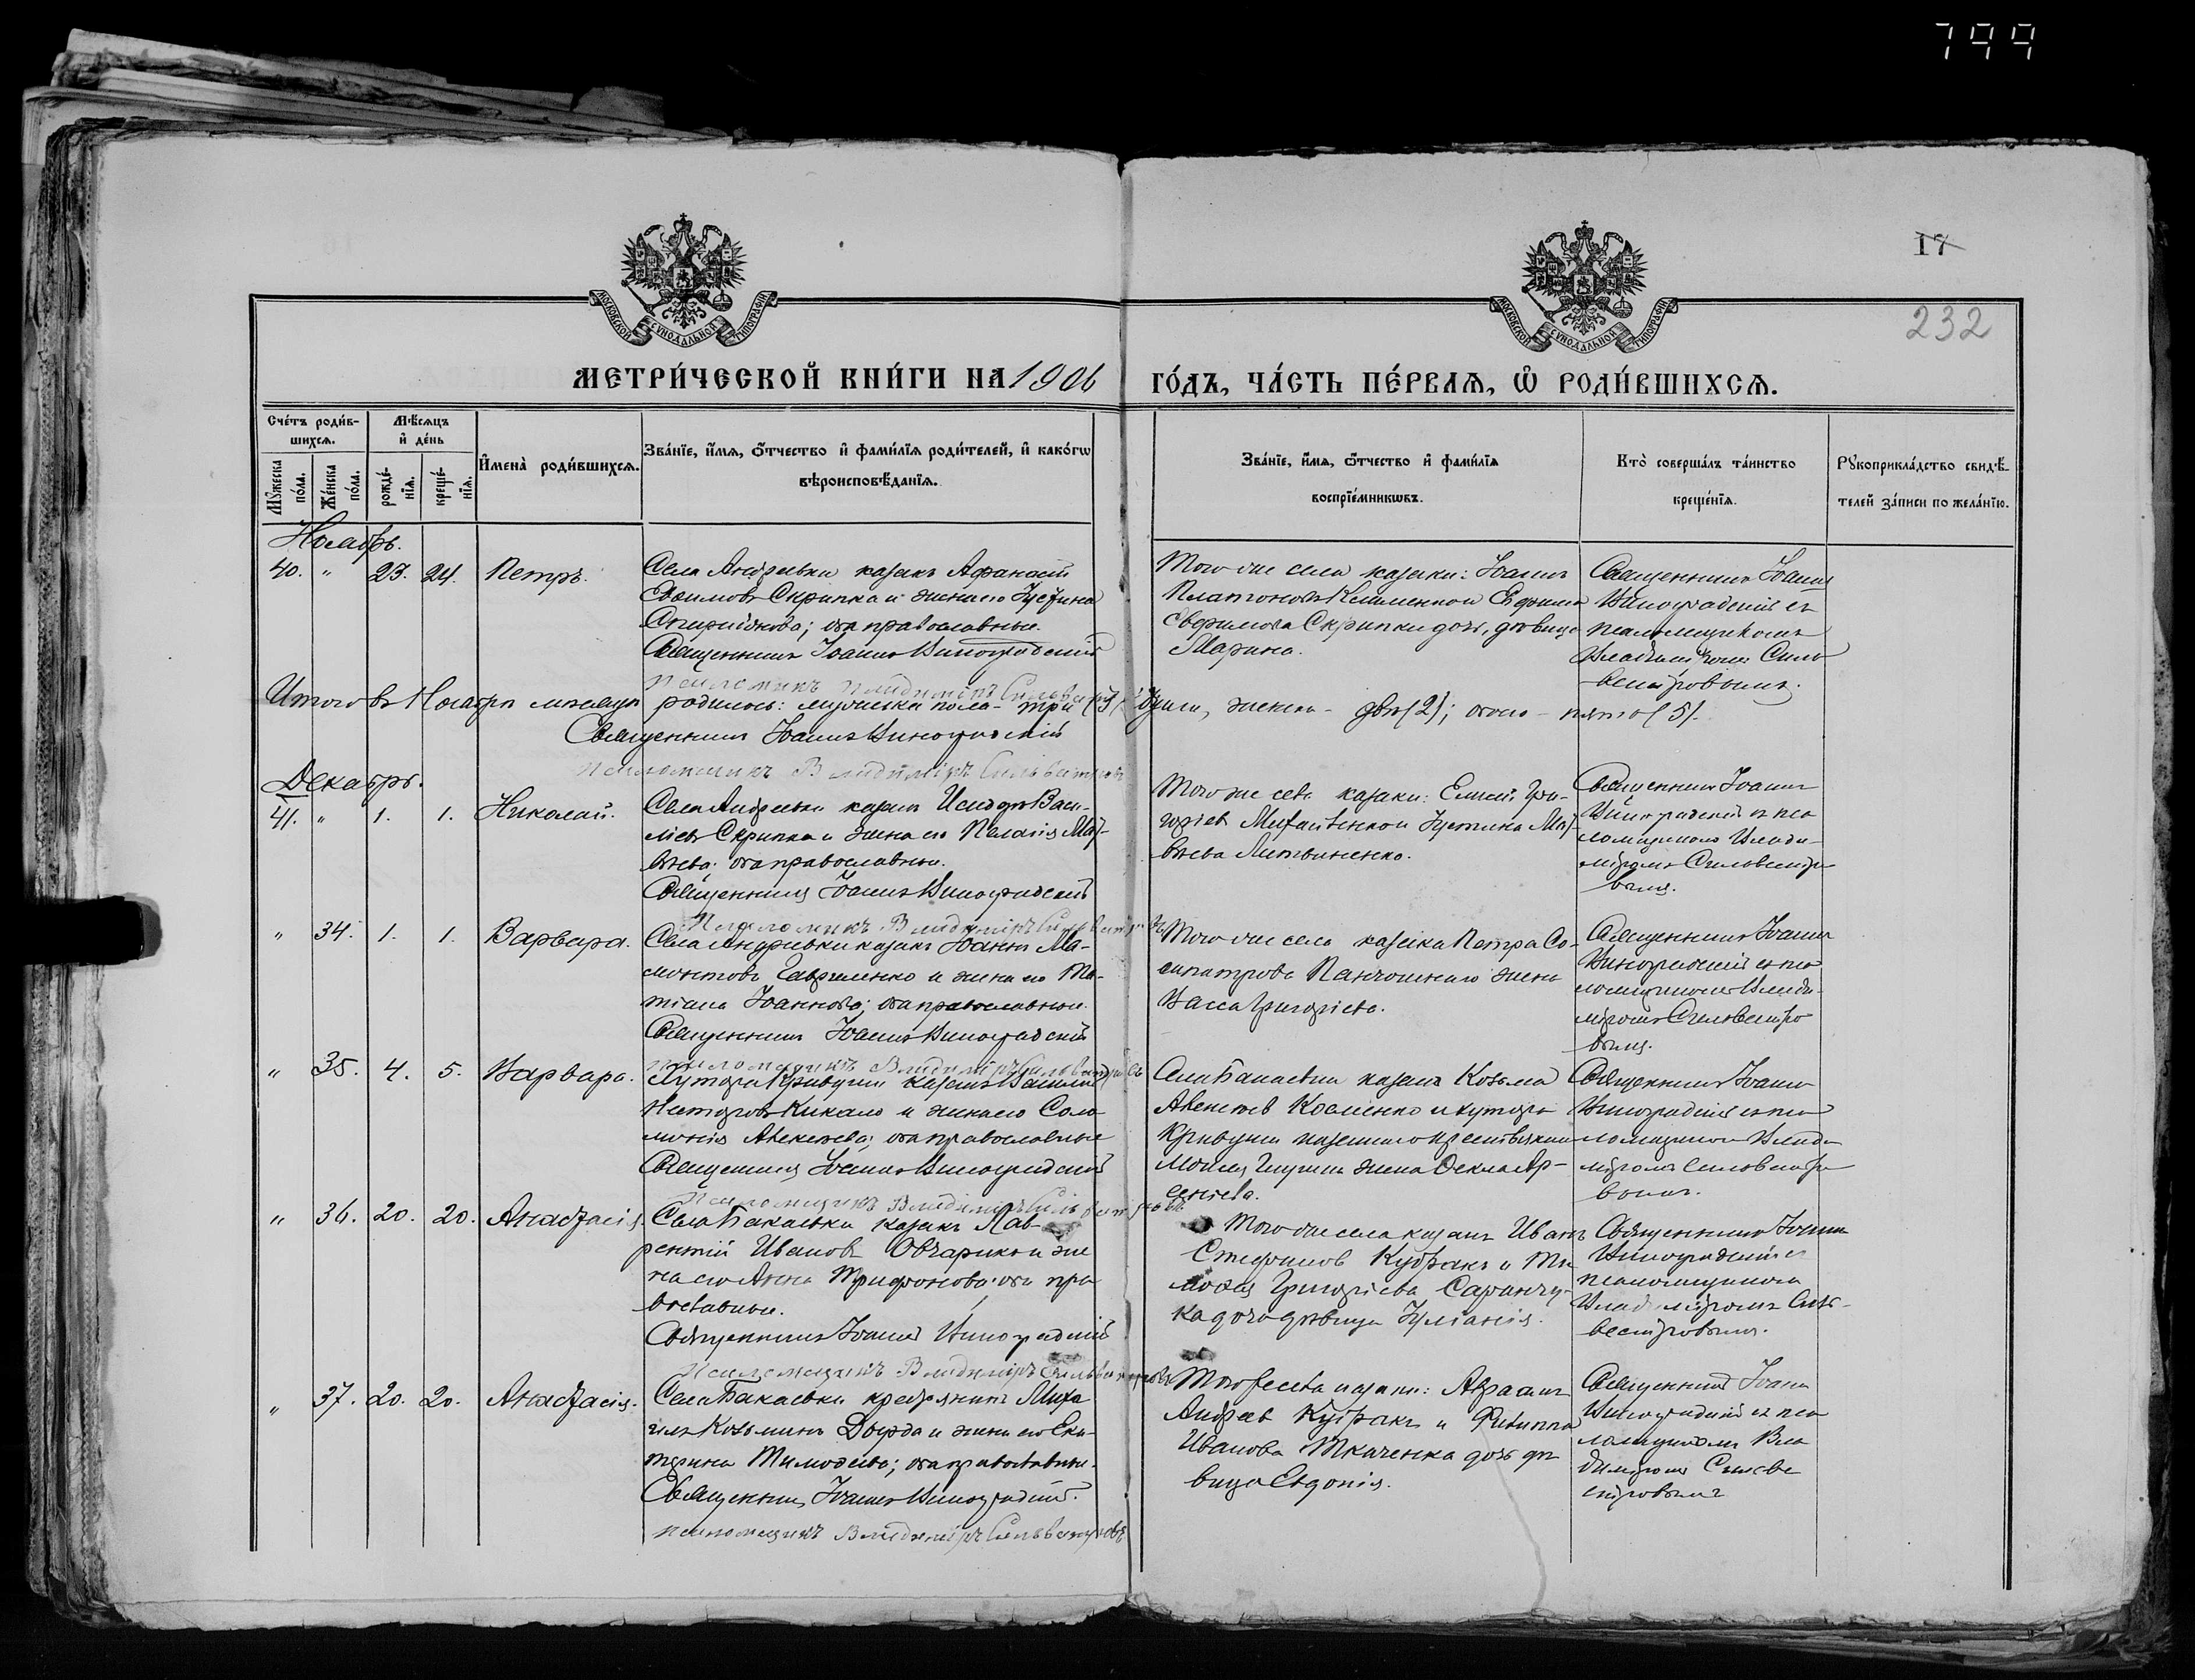 799
17
232
МОСКОВСКОЙ СѴНОДАЛЬНОЙ ТИПОГРАФІИ
МОСКОВСКОЙ СѴНОДАЛЬНОЙ ТИПОГРАФІИ
МЕТРИ́ЧЕСКОЙ КНИ́ГИ НА 1906 ГО́ДЪ, ЧА́СТЬ ПЕ́РВАѦ, Ѡ҆ РОДИ́ВШИХСѦ.
Сче́тъ роди́в-
шихсѧ.
Мꙋ́жеска по́ла.
Же́нска по́ла.
Мѣ́сѧцъ
и҆ де́нь
рожде́-
нїѧ.
креще́-
нїѧ.
И҆мена̀ роди́вшихсѧ.
Зва́нїе, и҆́мѧ, ѻ҆́тчество и҆ фами́лїѧ роди́телей, и҆ како́гѡ
вѣроисповѣ́данїѧ.
Зва́нїе, и҆́мѧ, ѻ҆́тчество и҆ фами́лїѧ
воспрїе́мникѡвъ.
Кто̀ соверша́лъ та́инство
креще́нїѧ.
Рꙋкоприкла́дство свидѣ́-
телей за́писи по жела́нїю.
Ноябрь.
40. " 23. 24. Петръ.
Села Андреевки казакъ Афанасій
Ефимовъ Скрипка и жена его Іустина
Спиридонова; оба православные.
Священникъ Іоаннъ Виноградскій
Псаломщикъ Владиміръ Сильвестровъ
Того же села казаки: Іоаннъ
Платоновъ Клименко и Ефима
Ефимова Скрипки дочь, девица
Марина.
Священникъ Іоаннъ
Виноградскій съ
псаломщикомъ
Владиміромъ Силь-
вестровымъ.
Итого въ Ноябре месяце родилось: мужеска пола - три (3) души, женска - две (2); обоего - пять (5).
Священникъ Іоаннъ Виноградскій
Псаломщикъ Владиміръ Сильвестровъ
Декабрь.
41. " 1. 1. Николай.
Села Андреевки казакъ Исидоръ Васи-
ліевъ Скрипка и жена его Пелагія Мат-
веева; оба православные.
Священникъ Іоаннъ Виноградскій
Псаломщикъ Владиміръ Сильвестровъ
Того же села казаки: Елисей Гри-
горіевъ и Іустина Мат-
веева Литвиненко.
Священникъ Іоаннъ
Виноградскій съ пса-
ломщикомъ Влади-
міромъ Сильвестро-
вымъ.
" 34. 1. 1. Варвара.
Села Андреевки казакъ Іоаннъ Ма-
монтовъ Гавриленко и жена его Та-
тіана Іоаннова; оба православные.
Священникъ Іоаннъ Виноградскій
Псаломщикъ Владиміръ Сильвестровъ
Того же села казака Петра Со-
сипатрова жена
Васса Григоріева.
Священникъ Іоаннъ
Виноградскій съ пса-
ломщикомъ Влади-
міромъ Сильвестро-
вымъ.
" 35. 4. 5. Варвара.
Хутора Кривуши казакъ Василій
Несторовъ Кикало и жена его Соло-
монія Алексеева; оба православные
Священникъ Іоаннъ Виноградскій
Псаломщикъ Владиміръ Сильвестровъ
Села Бакаевки казакъ Козьма
Алексеевъ Косменко и хутора
Кривуши жена Ѳекла Ар-
сеніева.
Священникъ Іоаннъ
Виноградскій съ пса-
ломщикомъ Влади-
міромъ Сильвестро-
вымъ.
" 36. 20. 20. Анастасія
Села Бакаевки казакъ Лав-
рентій Ивановъ Овчарикъ и же-
на его Анна Трифонова; оба пра-
вославные.
Священникъ Іоаннъ Виноградскій
Псаломщикъ Владиміръ Сильвестровъ
Того же села казакъ Иванъ
Стефановъ Кубракъ и Ти-
моѳея Григоріева Саранчу-
ка дочь девица Іуліанія.
Священникъ Іоаннъ
Виноградскій съ
псаломщикомъ
Владиміромъ Силь-
вестровымъ.
" 37. 20. 20. Анастасія.
Села Бакаевки крестьянинъ Миха-
илъ Козьминъ Доерда и жена его Ека-
терина Тимоѳеева; оба православные.
Священникъ Іоаннъ Виноградскій.
Псаломщикъ Владиміръ Сильвестровъ
Того же села казаки: Авраамъ
Андреевъ Кубракъ и Филиппа
Иванова Ткаченка дочь де-
вица Евдокія.
Священникъ Іоаннъ
Виноградскій съ пса-
ломщикомъ Вла-
диміромъ Сильве-
стровымъ